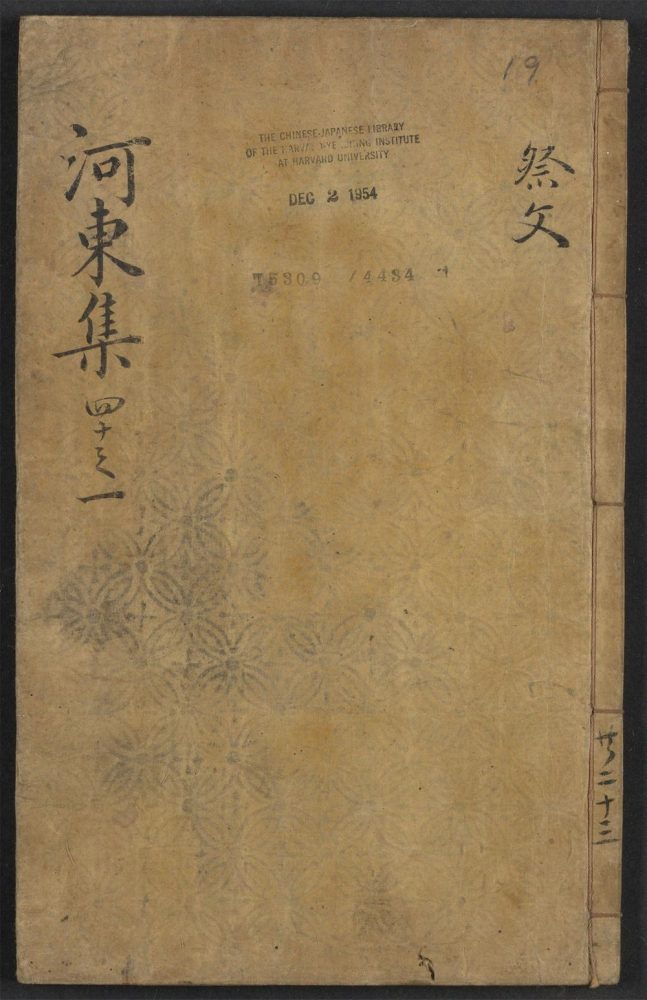 19
祭文
THE CHINESE-JAPANESE LIBRARY
OF THE HARVARD-YENCHING INSTITUTE
AT HARVARD UNIVERSITY
DEC 2 1954
T5309 /4434
河東集 四十之一
共二十二